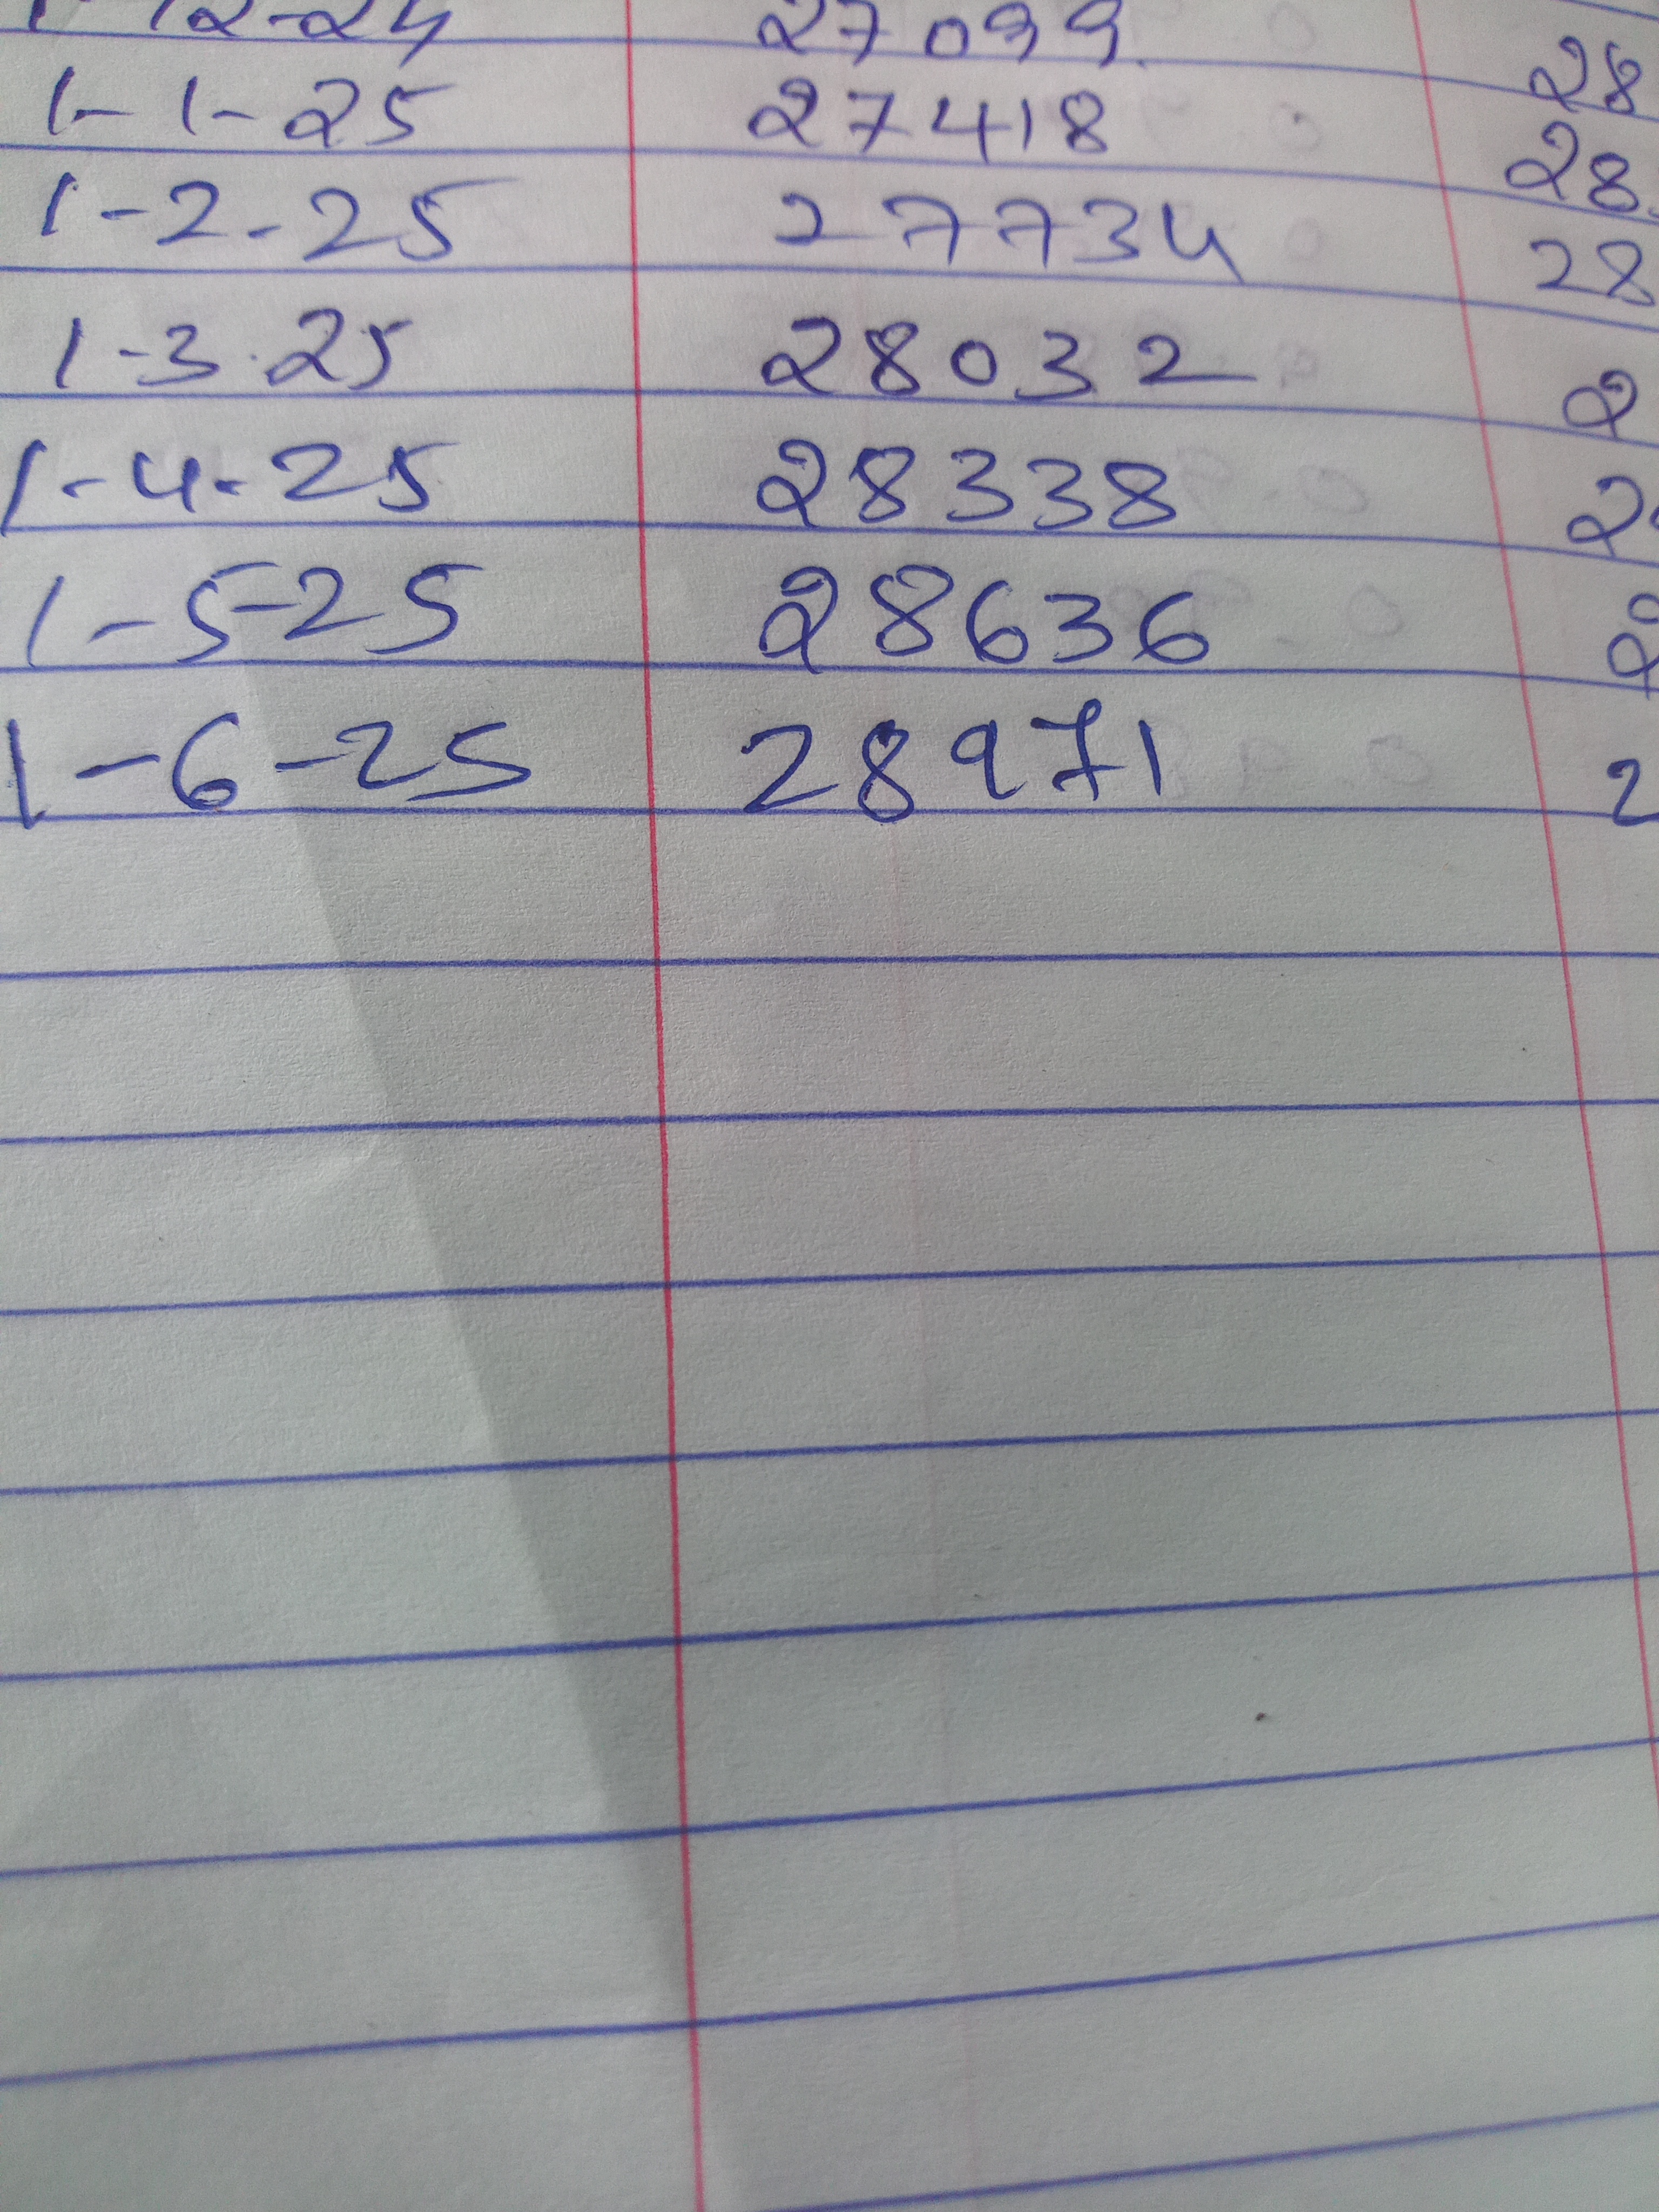 1-12-24 27099 28
1-1-25 27418 28
1-2-25 27734 28
1-3-25 28032 2
1-4-25 28338 2
1-5-25 28636 2
1-6-25 28971 2